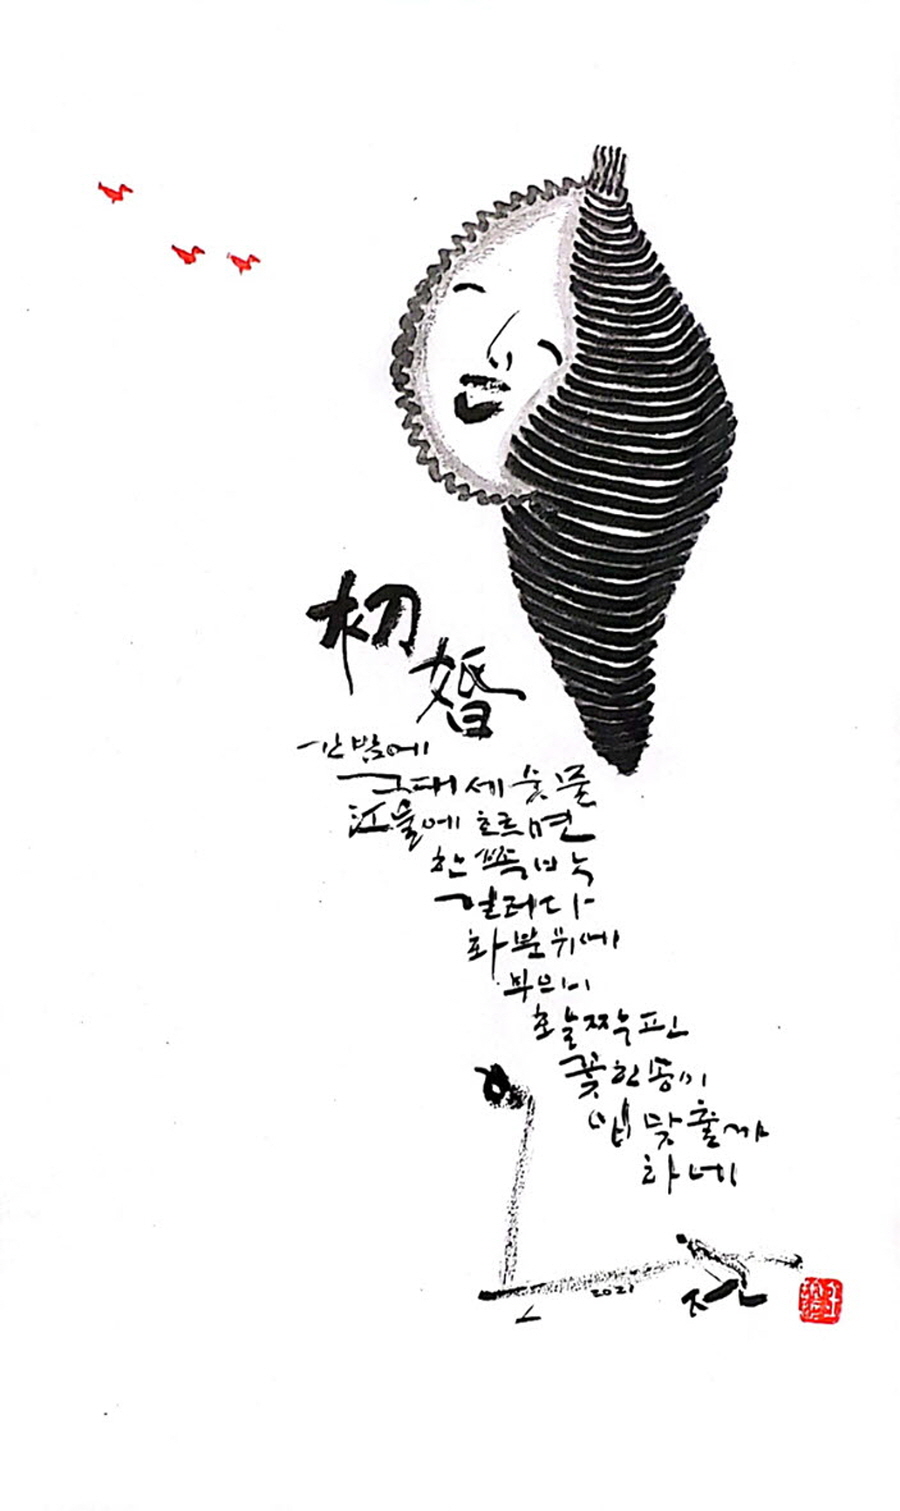 初
婚
간밤에
그대 세숫물
江물에 흐르면
한 쪽바	
걸러다
화분위에
부으니
호늘짝 핀
꽃한송이
입 맞출까
하네
2021